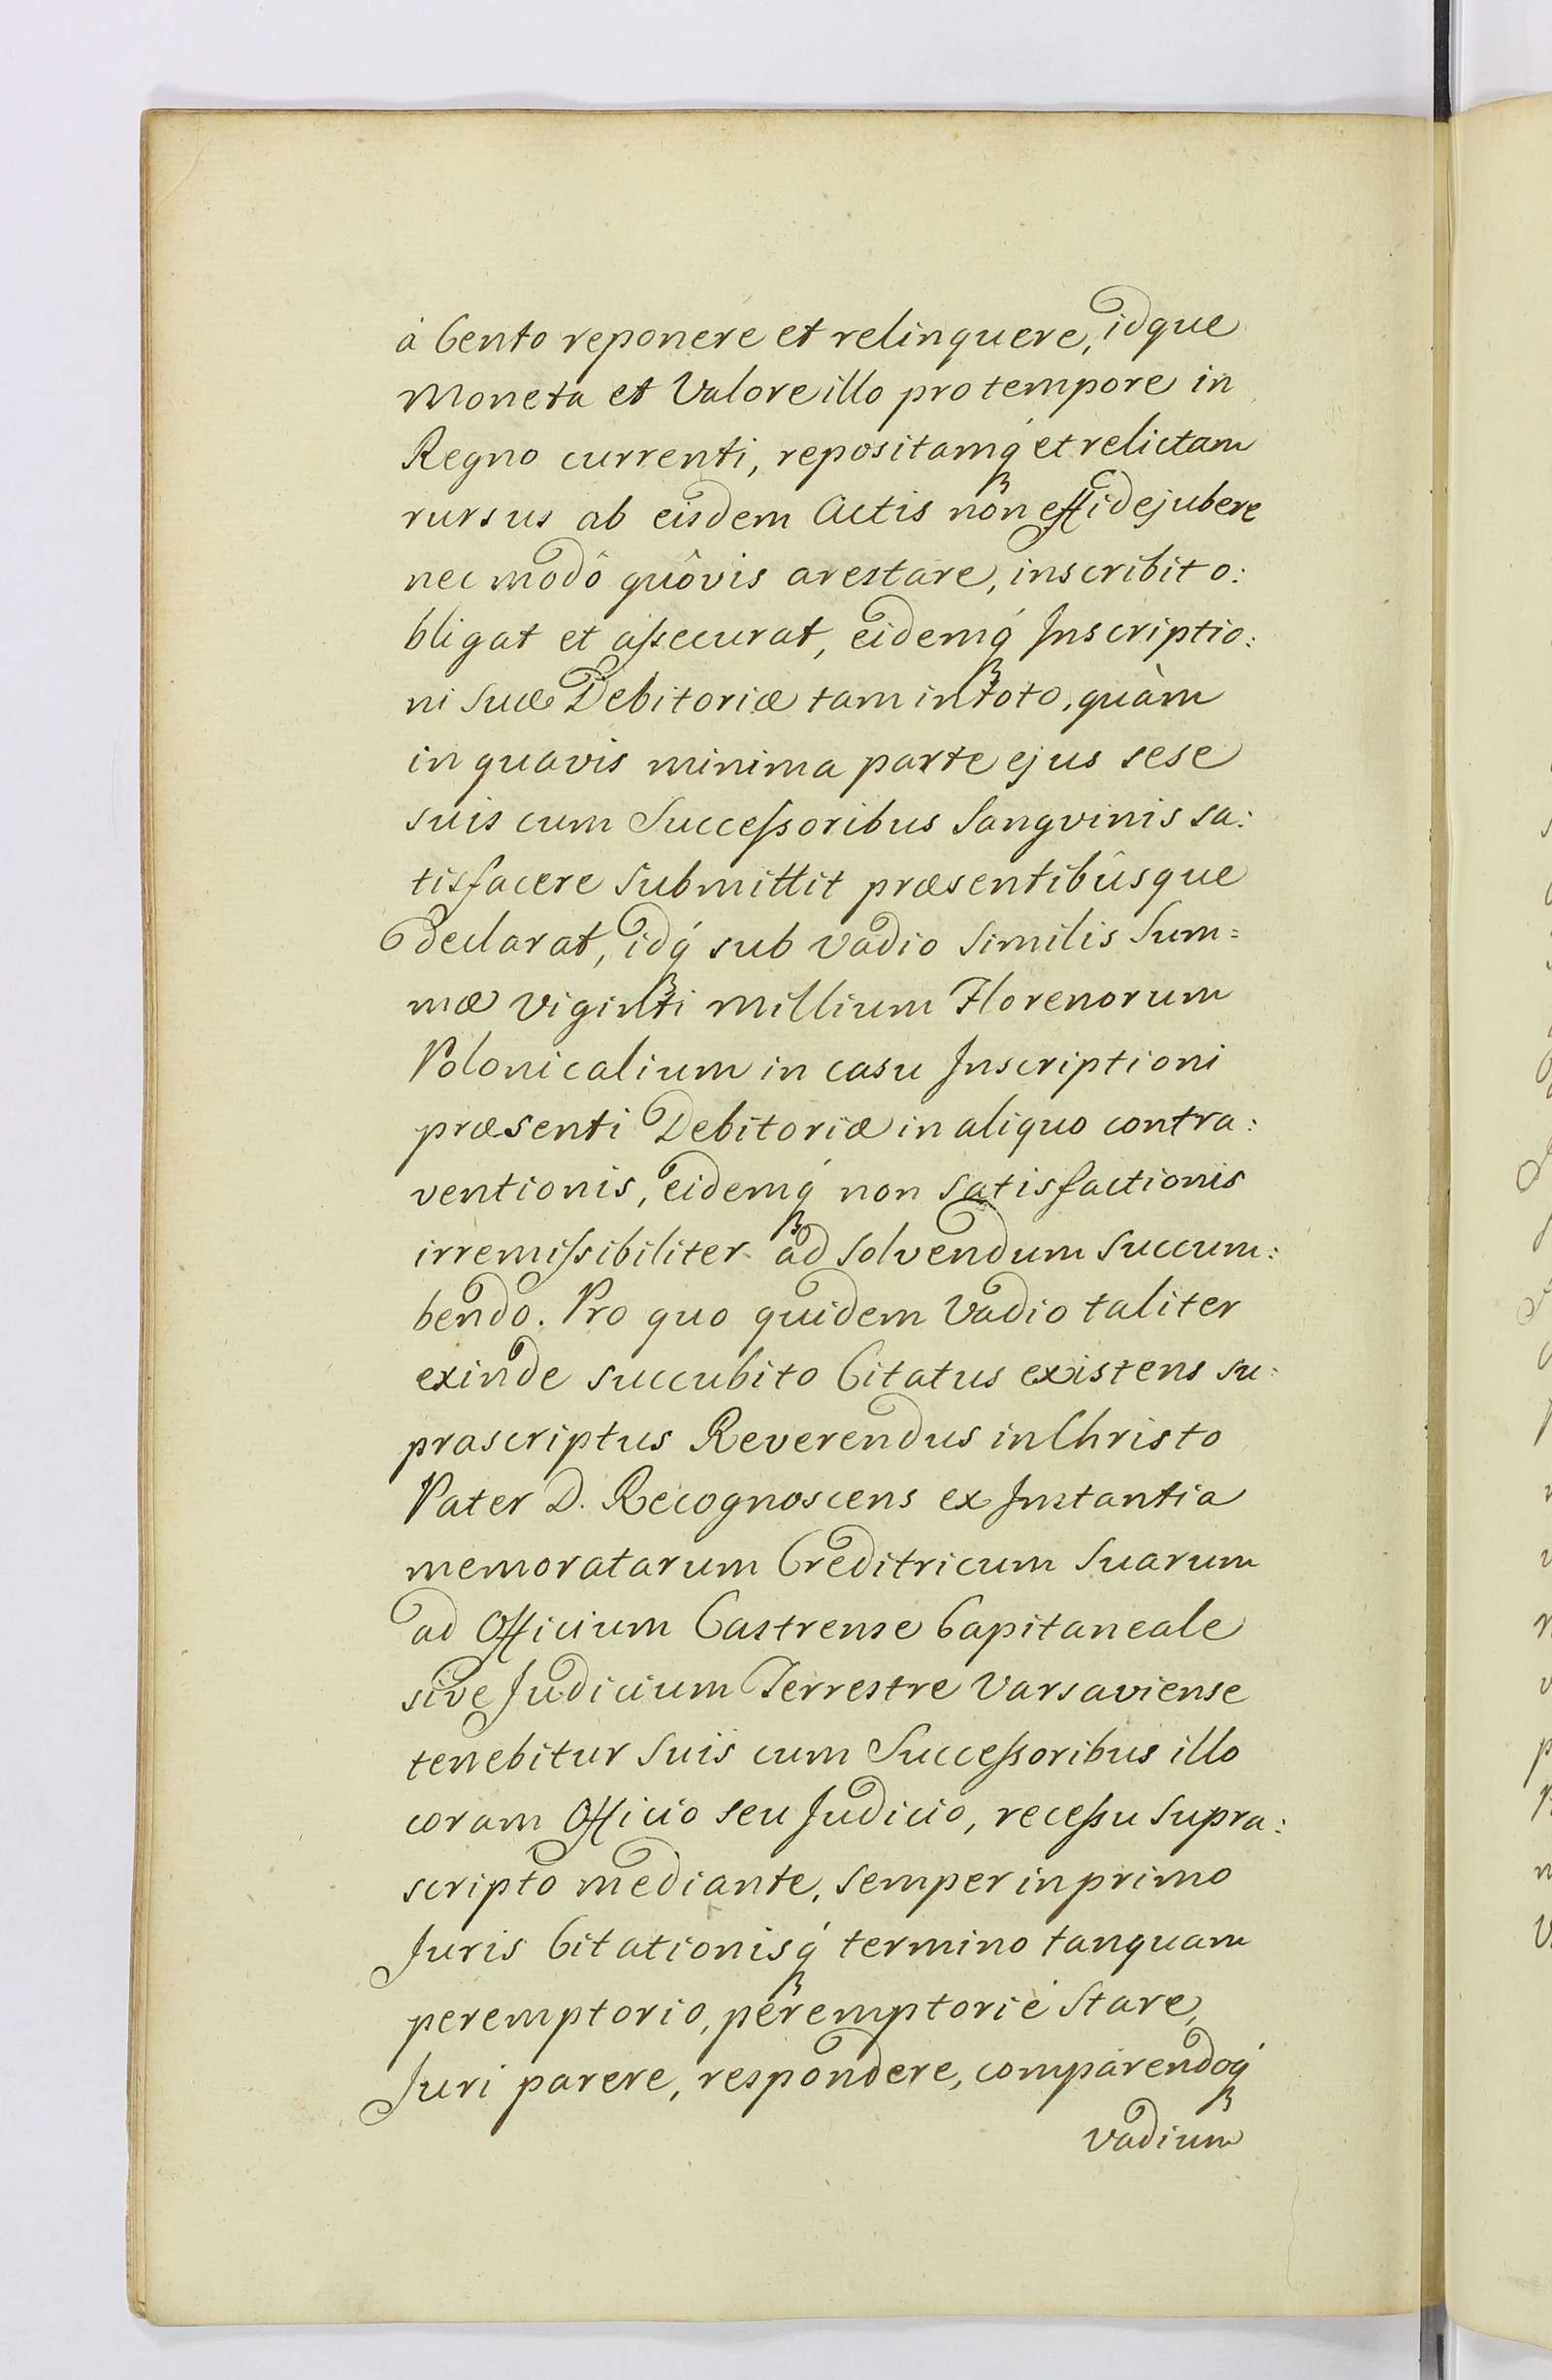 à Cento reponere et relinquere, idque
Moneta et Valore illo pro tempore in
Regno currenti, repositamq́; et relictam
rursus ab eisdem Actis non effidejubere
nec modô quôvis arestare, inscribit o:
bligat et aſsecurat, eidemq́; Inscriptio:
ni Suæ Debitoriæ tam in toto, quàm
in quavis minima parte ejus sese
suis cum Succeſsoribus Sangvinis sa:
tisfacere Submittit præsentibûsque
declarat, idq́; sub vadio Similis Sum=
mæ viginti Millium Florenorum
Polonicalium in casu Inscriptioni
præsenti Debitoriæ in aliquo contra:
ventionis, eidemq́; non Satisfactionis
irremiſsibiliter ad Solvendum Succum:
bendo. Pro quo quidem Vadio taliter
exinde Succubito Citatus existens su:
prascriptus Reverendus in Christo
Pater D. Recognoscens ex Instantia
memoratarum Creditricum Suarum
ad Officium Castrense Capitaneale
sive Judicium Terrestre Varsaviense
tenebitur Suis cum Succeſsoribus illo
coram Officio seu Judicio, receſsu Supra:
scripto mediante, semper in primo
Juris Citationisq́; termino tanquam
peremptorio, peremptoriè Stare,
Juri parere, respondere, comparendoq́;
vadium